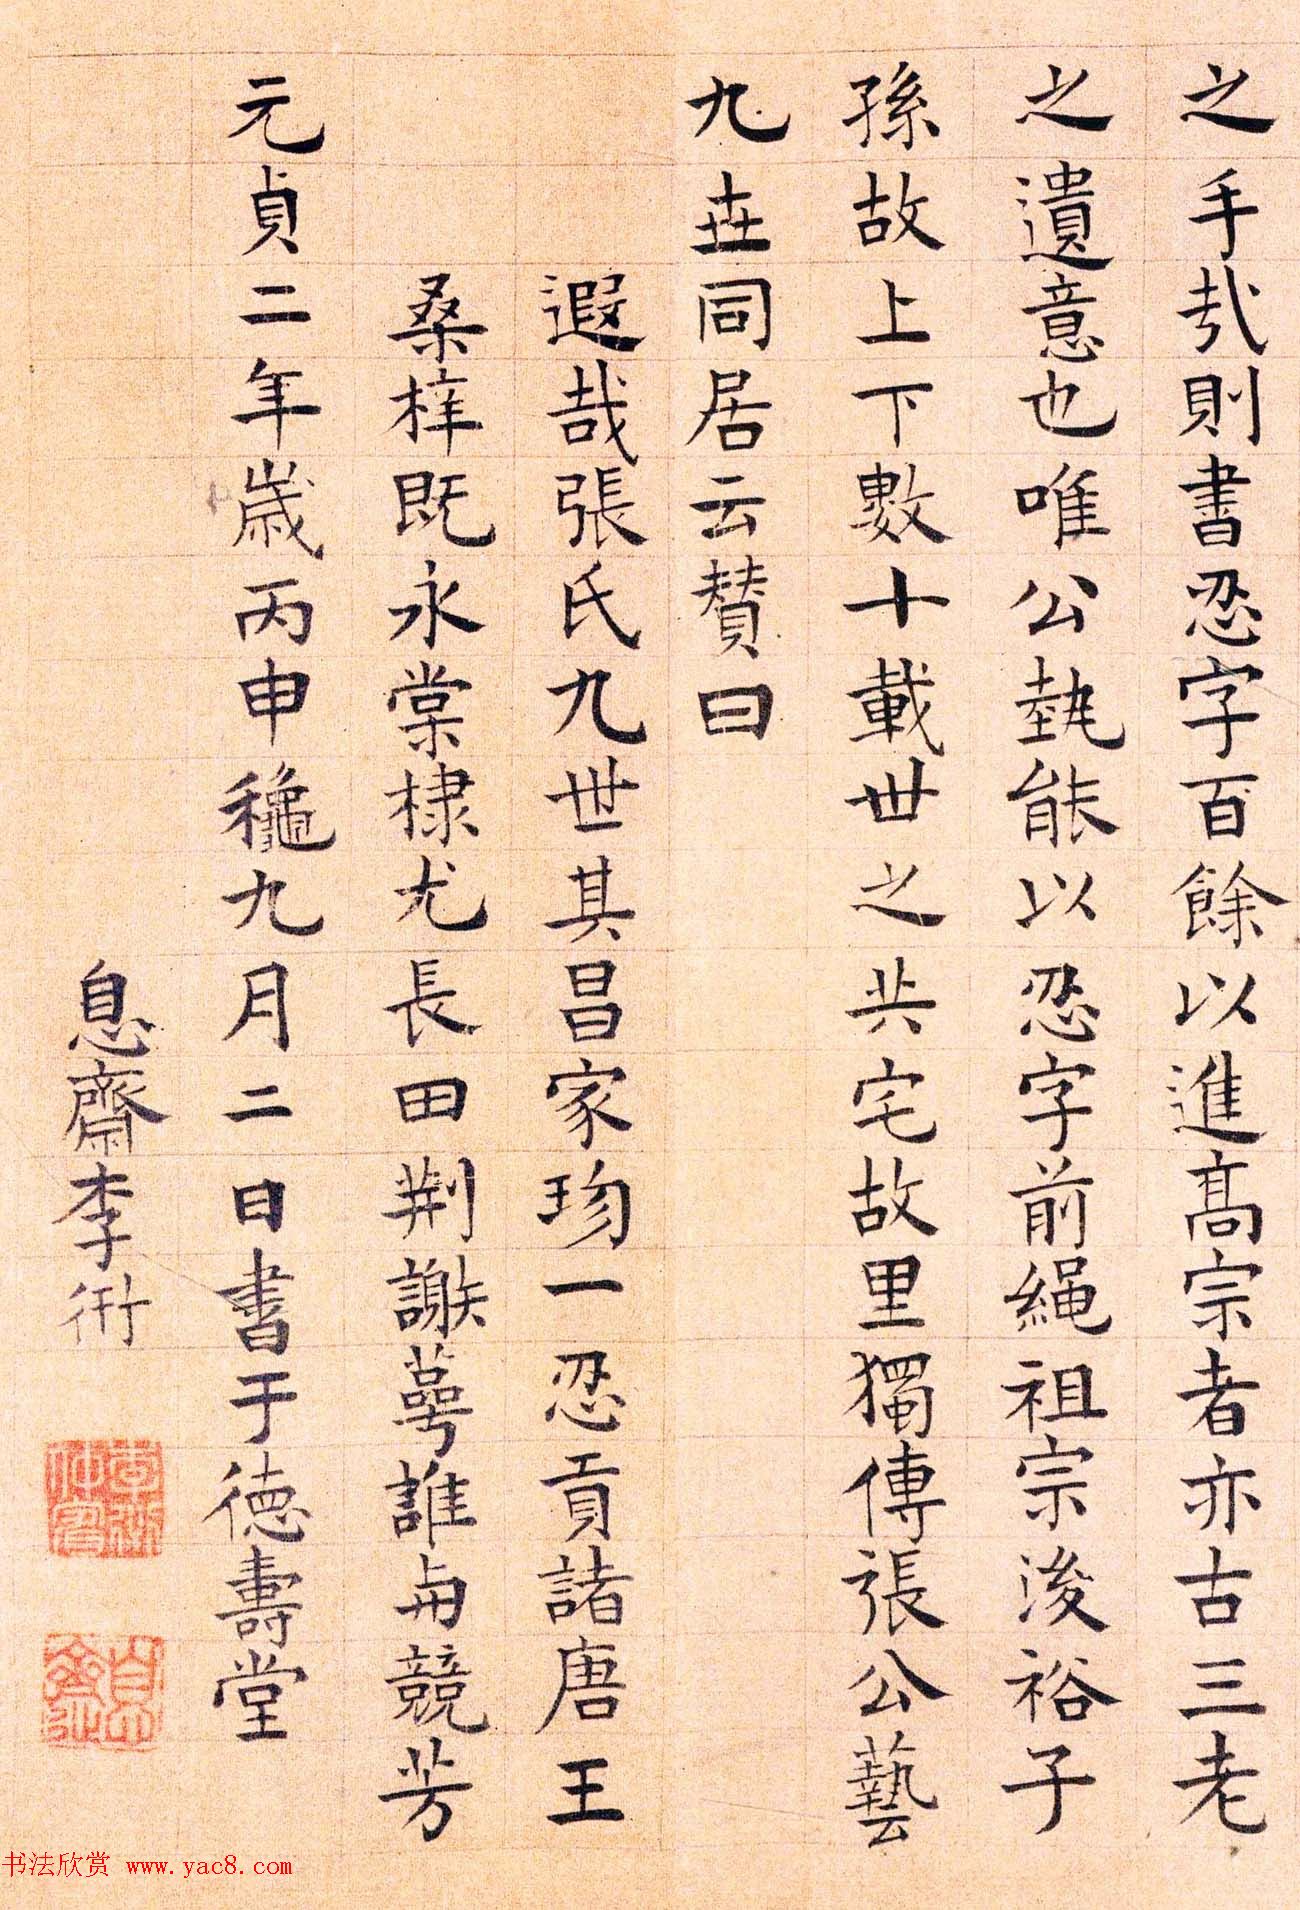 之手哉則書忍字百餘以進髙宗者亦古三老
之遺意也唯公埶能以忍字前繩祖宗浚裕子
孫故上下數十載世之共宅故里獨傳張公藝
九世同居云賛曰
遐哉張氏九世其昌家珍一忍貢諸唐王
桑梓既永棠棣尤長田荆謝萼誰与競芳
元貞二年歲丙申穐九月二日書于徳壽堂
息齋李衎
李衎仲賓
息齋
书法欣赏 www.yac8.com